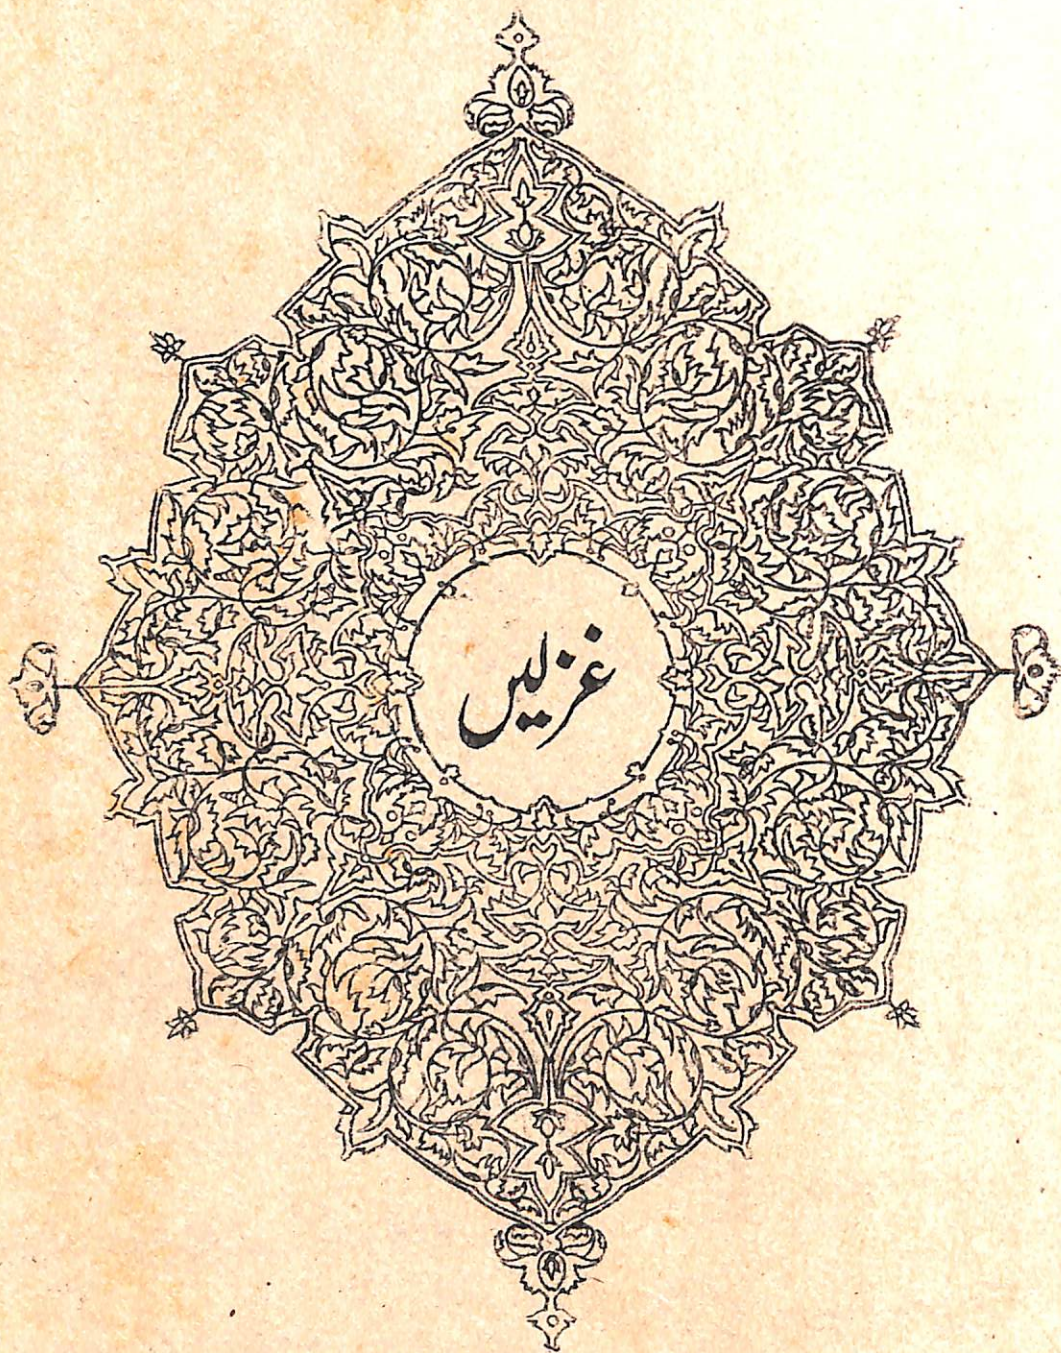 غزلیں